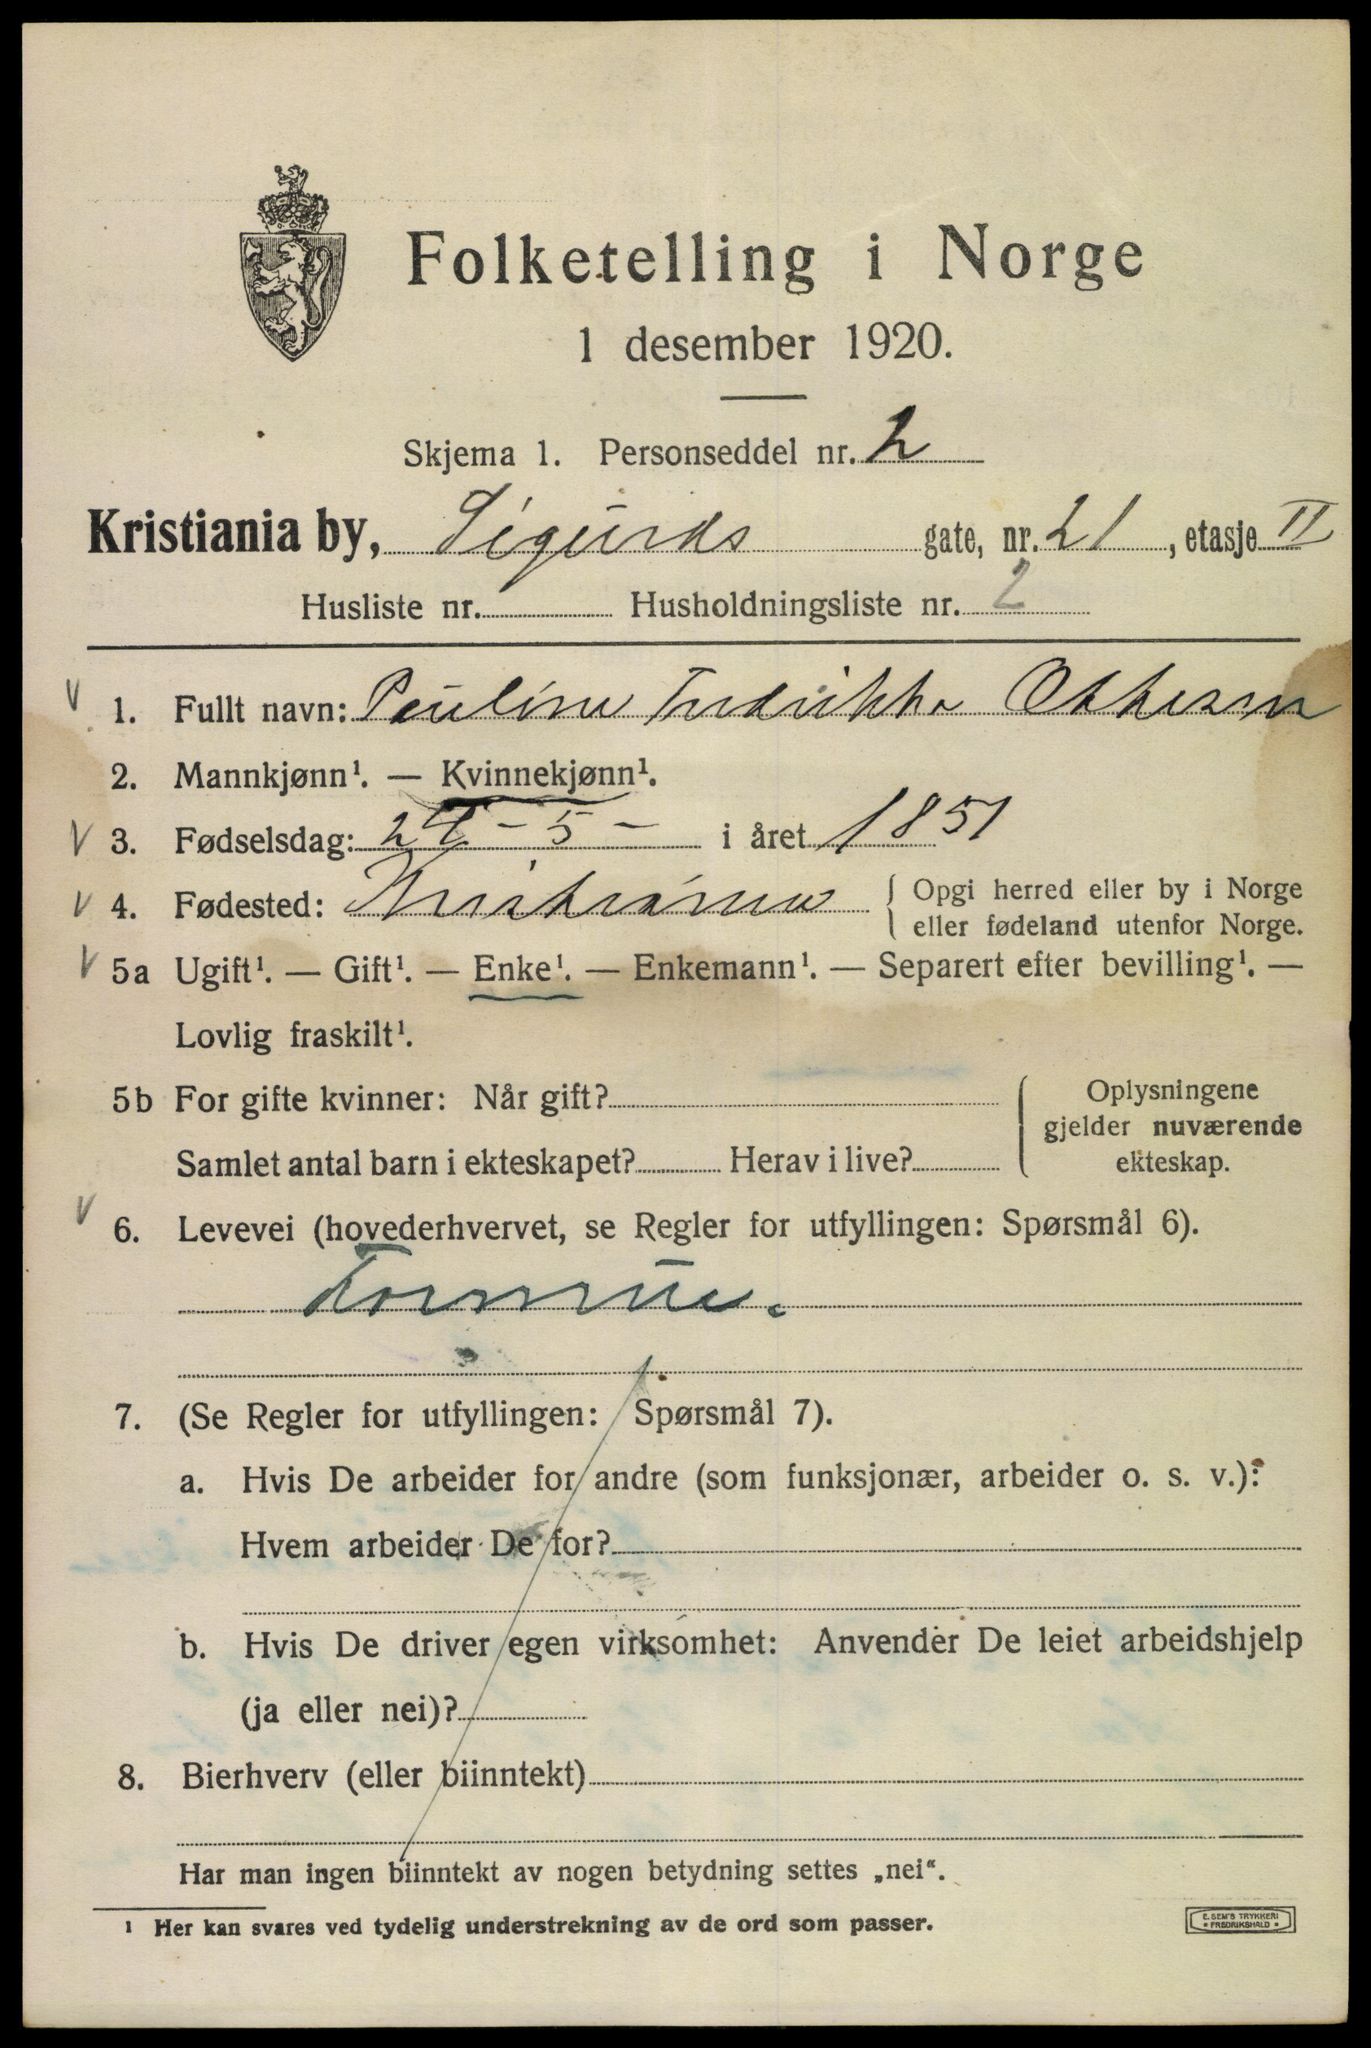 Folketelling i Norge
1 desember 1920.
Skjema 1. Personseddel nr. 2
Kristiania by, Sigurds gate, nr. 21, etasje II
Husliste nr. Husholdningsliste nr. 2
1. Fullt navn: Pauline Fredrikke Ottesen
2. Mannkjønn¹. — Kvinnekjønn¹.
3. Fødselsdag: 24 - 5 - i året 1851
4. Fødested: Kristiania { Opgi herred eller by i Norge
eller fødeland utenfor Norge.
5a Ugift¹. — Gift¹. — Enke¹. — Enkemann¹. — Separert efter bevilling¹. —
Lovlig fraskilt¹.
5b For gifte kvinner: Når gift? { Oplysningene
gjelder nuværende
Samlet antal barn i ekteskapet? Herav i live? ekteskap.
6. Levevei (hovederhvervet, se Regler for utfyllingen: Spørsmål 6).
Formue.
7. (Se Regler for utfyllingen: Spørsmål 7).
a. Hvis De arbeider for andre (som funksjonær, arbeider o. s. v.):
Hvem arbeider De for?
b. Hvis De driver egen virksomhet: Anvender De leiet arbeidshjelp
(ja eller nei)?
8. Bierhverv (eller biinntekt)
Har man ingen biinntekt av nogen betydning settes „nei“.
¹ Her kan svares ved tydelig understrekning av de ord som passer.
E. SEM'S TRYKKERI
FREDRIKSHALD